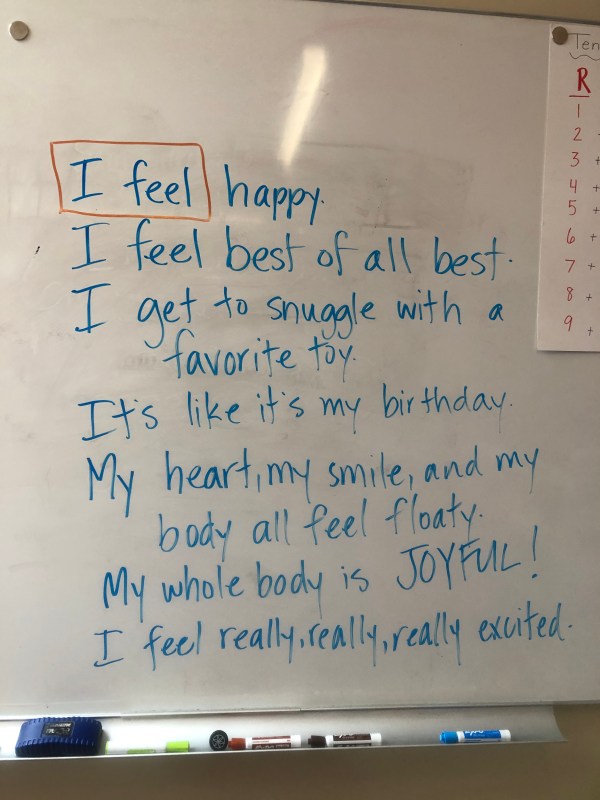 I feel happy.
I feel best of all best.
I get to snuggle with a
favorite toy.
It's like it's my birthday.
My heart, my smile, and my
body all feel floaty.
My whole body is JOYFUL!
I feel really, really, really excited.
Ten
R
1
2
3 +
4 +
5 +
6 +
7 +
8 +
9 +